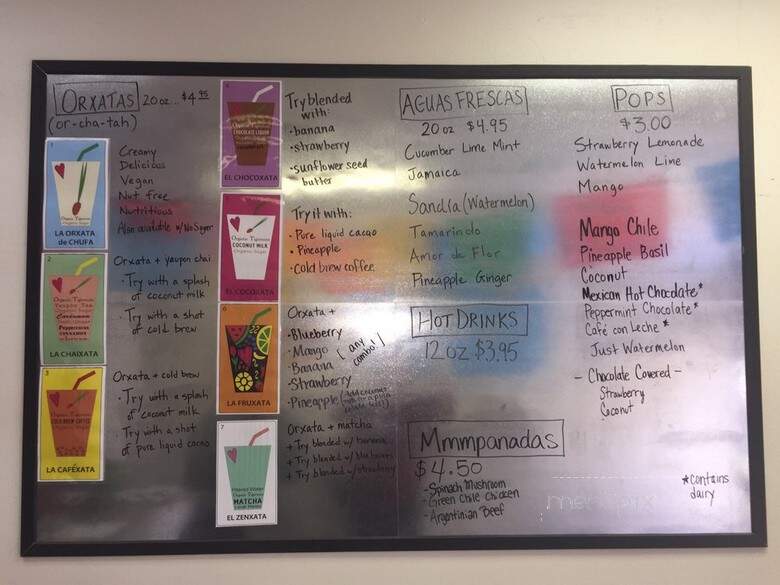 ORXATAS 20 oz... $4.95
(or-cha-tah)
1
LA ORXATA
de CHUFA
Creamy
Delicious
Vegan
Nut free
Nutritious
Also available w/ No Sugar
2
Cardamom
Peppercorns
LA CHAIXATA
Orxata + yaupon chai
· Try with a splash
of coconut milk
· Try with a shot
of cold brew
3
COLD BREW COFFEE
LA CAFÉXATA
Orxata + cold brew
· Try with a splash
of coconut milk
· Try with a shot
of pure liquid cacao
EL CHOCOXATA
Try blended
with:
· banana
· strawberry
· sunflower seed
butter
COCONUT MILK
EL COCOXATA
Try it with:
· Pure liquid cacao
· Pineapple
· Cold brew coffee
LA FRUXATA
Orxata +
· Blueberry
· Mango
· Banana
· Strawberry
(any
combo!)
· Pineapple
7
MATCHA
EL ZENXATA
Orxata + matcha
+ Try blended w/ banana
+ Try blended w/ blueberries
+ Try blended w/ strawberry
AGUAS FRESCAS
20 oz $4.95
Cucumber Lime Mint
Jamaica
Sandía (Watermelon)
Tamarindo
Amor de Flor
Pineapple Ginger
HOT DRINKS
12 oz $3.95
Mmmpanadas
$4.50
- Spinach Mushroom
- Green Chile Chicken
- Argentinian Beef
POPS
$3.00
Strawberry Lemonade
Watermelon Lime
Mango
Mango Chile
Pineapple Basil
Coconut
Mexican Hot Chocolate*
Peppermint Chocolate*
Café con Leche*
Just Watermelon
- Chocolate Covered -
Strawberry
Coconut
*contains
dairy